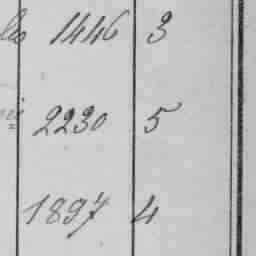 1446 3
2230 5
1897 4